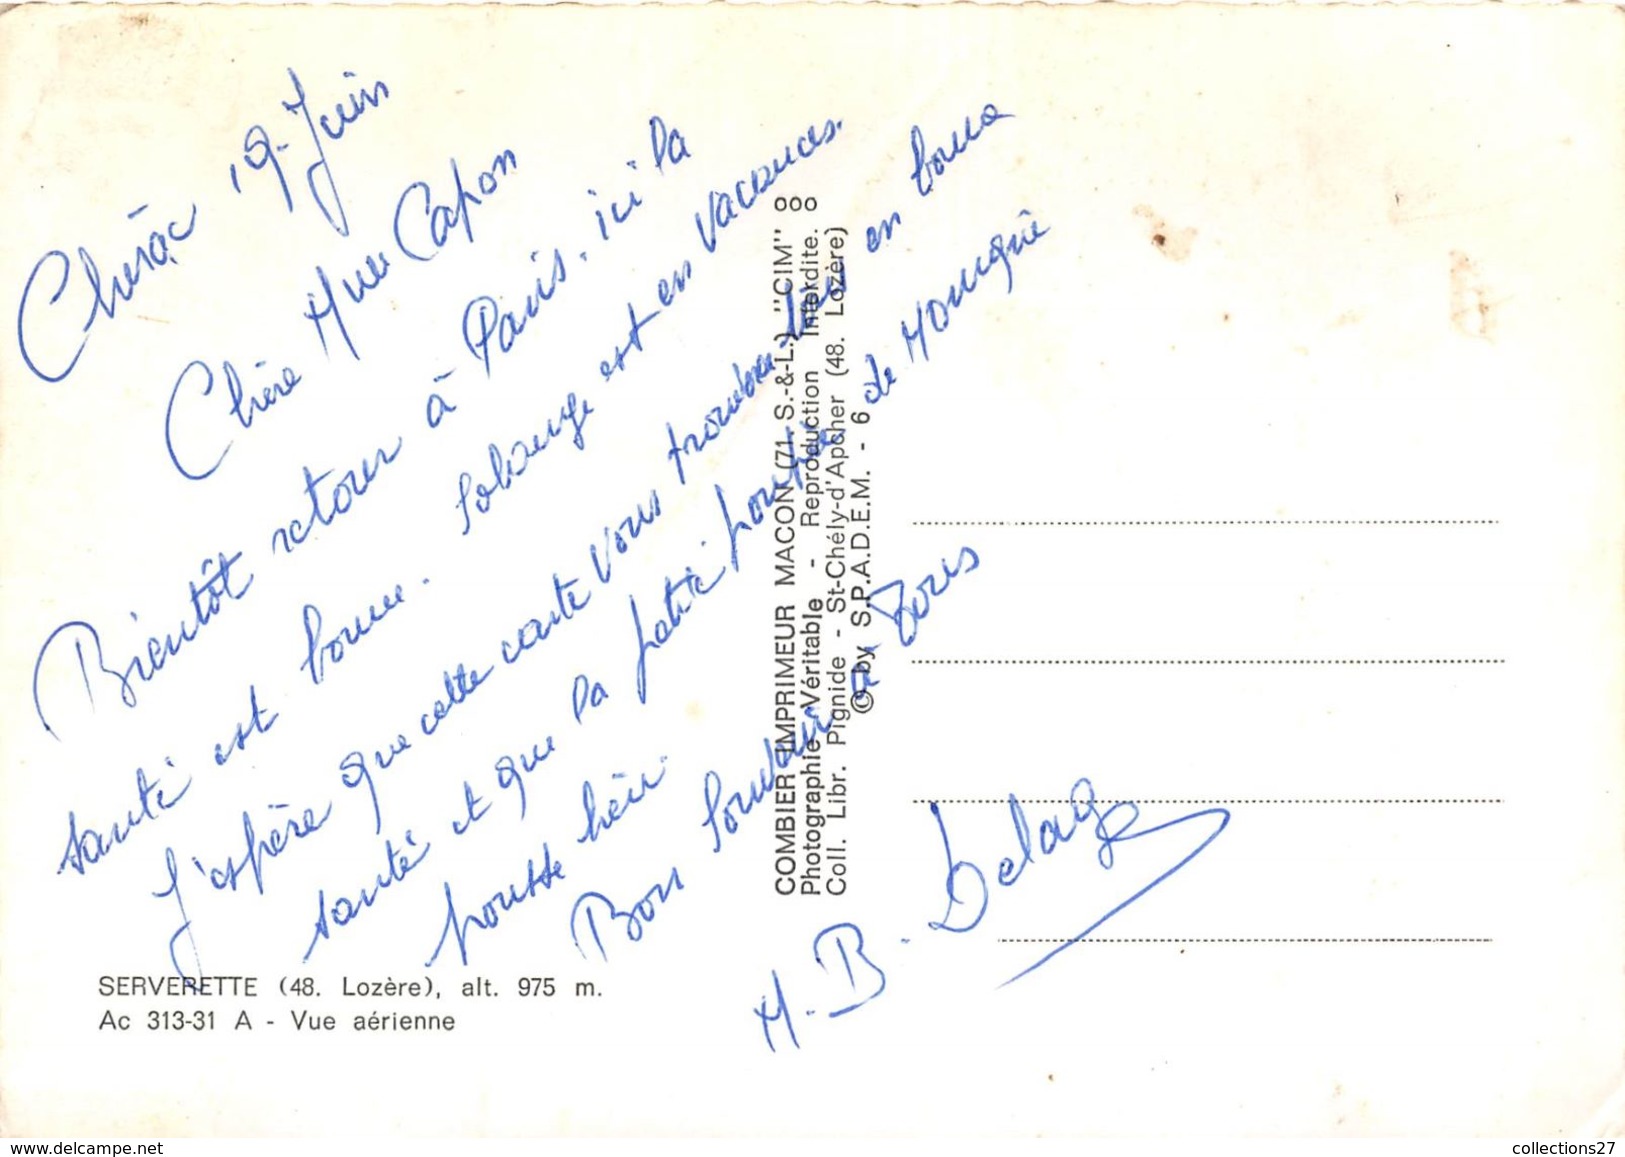 19. Juin
Chère Mme Capon
Bientôt retour à Paris. ici la
santé est bonne. Solange est en vacances.
J'espère que cette carte vous trouvera bien en bonne
santé et que la petite poupée de Monique
pousse bien.
Bon Souvenir à Tous
M. B. Delage
SERVERETTE (48. Lozère), alt. 975 m.
Ac 313-31 A - Vue aérienne
COMBIER IMPRIMEUR MACON (71. S.-&-L.) "CIM"
Photographie Véritable - Reproduction Interdite.
Coll. Libr. Pignide - St-Chély-d'Apcher (48. Lozère)
© by S.P.A.D.E.M. - 6
collections27